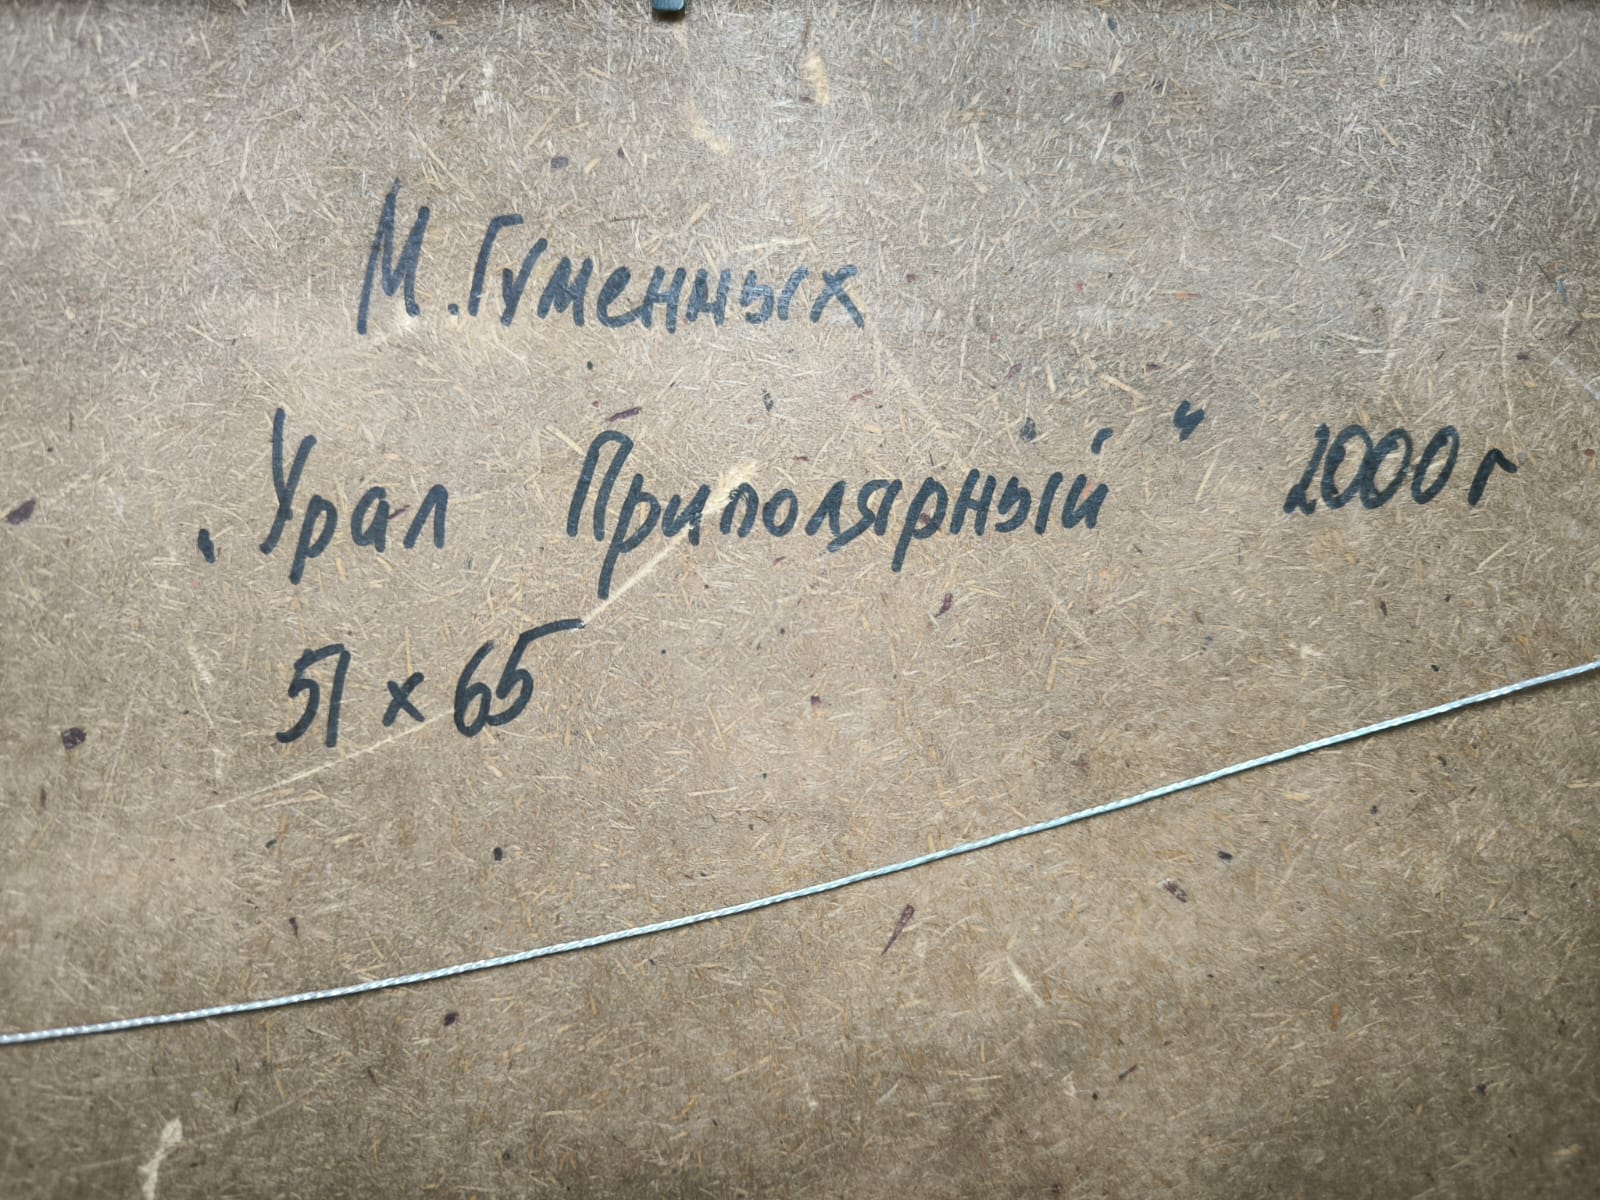 М. Гуменных
„Урал Приполярный“ 2000 г
51 x 65